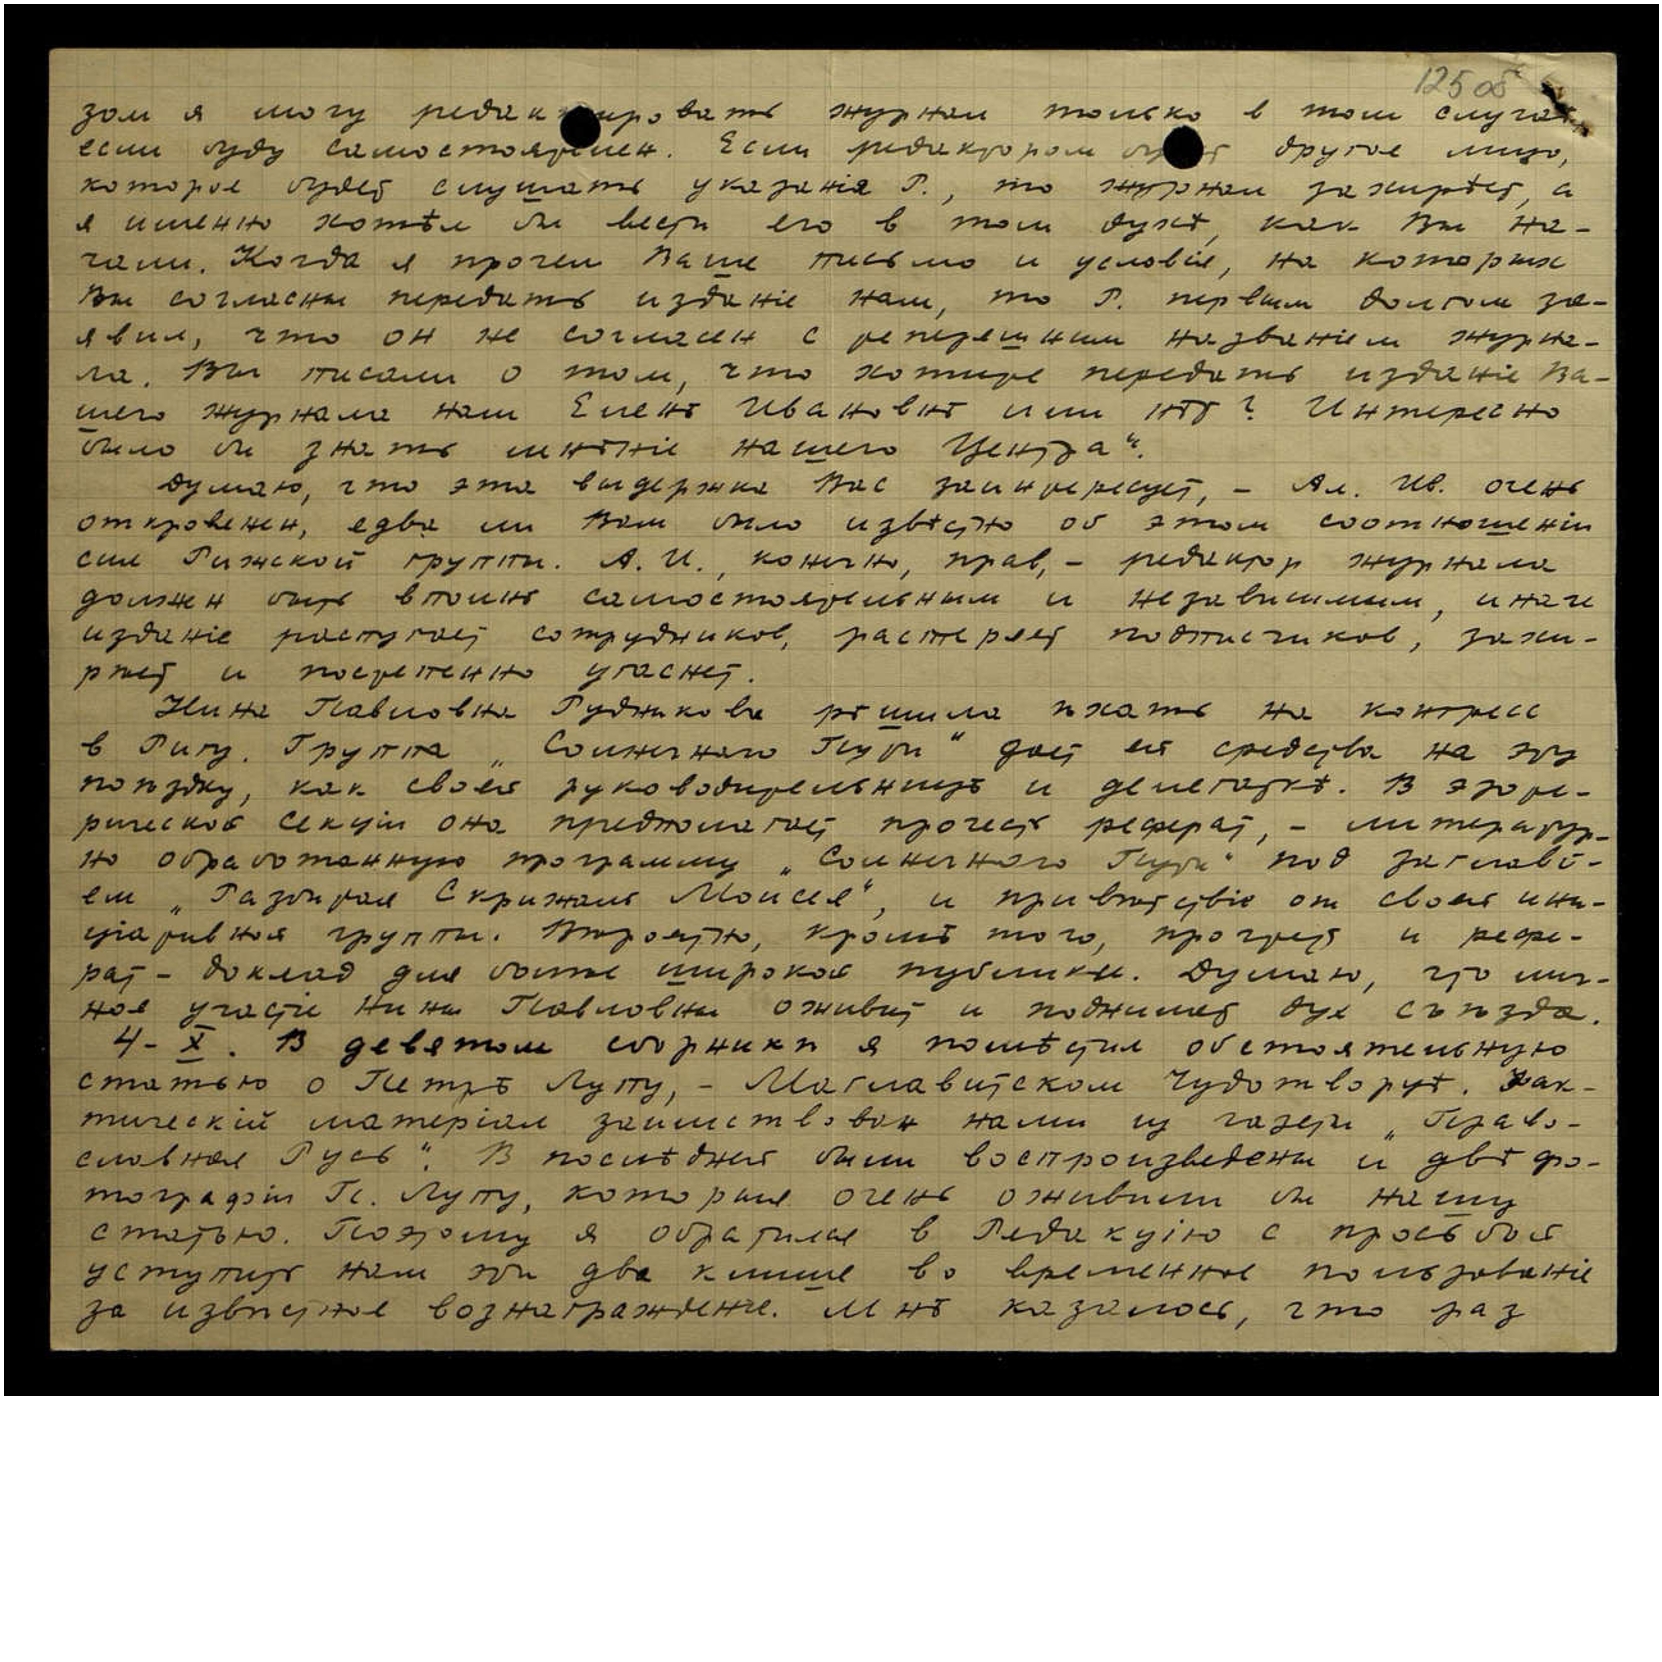 125 об
зом я могу редактировать журнал только в том случаѣ,
если буду самостоятелен. Если редактором будет другое лицо,
которое будет слушать указанія Р., то журнал захирѣет, а
я именно хотѣл бы вести его в том духѣ, как Вы на-
чали. Когда я прочел Ваше письмо и условіе, на которых
Вы согласны передать изданіе нам, то Р. первым долгом за-
явил, что он не согласен с теперешним названіем журна-
ла. Вы писали о том, что хотите передать изданіе Ва-
шего журнала нам Еленѣ Ивановнѣ или нѣт? Интересно
было бы знать мнѣніе нашего Центра".
Думаю, что эта выдержка Вас заинтересует, - Ал. Ив. очень
откровенен, едва ли Вам было извѣстно об этом соотношеніи
сил Рижской группы. А. И., конечно, прав, - редактор журнала
должен быть вполнѣ самостоятельным и независимым, иначе
изданіе распугает сотрудников, растеряет подписчиков, захи-
рѣет и постепенно угаснет.
Нина Павловна Рудникова рѣшила ѣхать на конгресс
в Ригу. Группа „Солнечнаго Пути" дает ей средства на эту
поѣздку, как своей руководительницѣ и делегаткѣ. В эзоте-
рической секціи она предполагает прочесть реферат, - литератур-
но обработанную программу „Солнечнаго Пути" под заглаві-
ем „Разбитая Скрижаль Моисея", и привѣтствіе от своей ини-
ціативной группы. Вѣроятно, кромѣ того, прочтет и рефе-
рат - доклад для болѣе широкой публики. Думаю, что лич-
ное участіе Нины Павловны оживит и поднимет дух съѣзда.
4-X. В девятом сборникѣ я помѣстил обстоятельную
статью о Петрѣ Лупу, - Маглавитском Чудотворцѣ. Фак-
тическій матеріал заимствован нами из газеты „Право-
славная Русь". В послѣдней были воспроизведены и двѣ фо-
тографіи П. Лупу, которые очень оживили бы нашу
статью. Поэтому я обратился в Редакцію с просьбой
уступить нам эти два клише во временное пользованіе
за извѣстное вознагражденіе. Мнѣ казалось, что раз